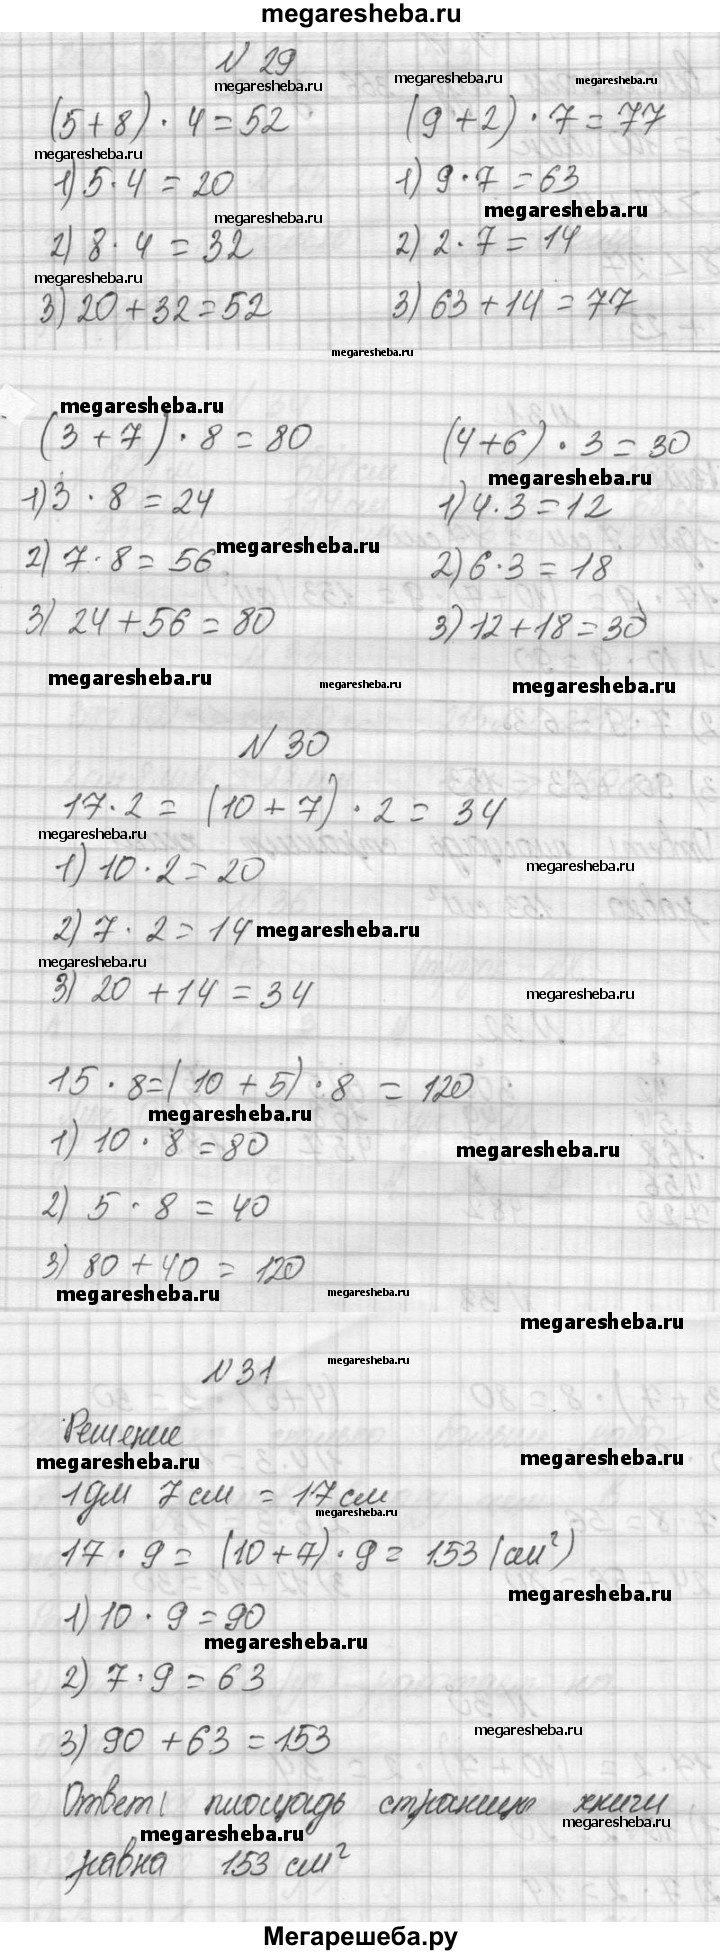 megaresheba.ru
N 29
megaresheba.ru megaresheba.ru megaresheba.ru
(5+8) · 4=52 (9+2) · 7=77
megaresheba.ru
1) 5·4=20 1) 9·7=63
megaresheba.ru megaresheba.ru
2) 8·4=32 2) 2·7=14
megaresheba.ru
3) 20+32=52 3) 63+14=77
megaresheba.ru
megaresheba.ru
(3+7) · 8=80 (4+6) · 3=30
megaresheba.ru
1) 3·8=24 1) 4·3=12
megaresheba.ru
2) 7·8=56 2) 6·3=18
3) 24+56=80 3) 12+18=30
megaresheba.ru megaresheba.ru megaresheba.ru
N 30
17·2= (10+7) · 2= 34
megaresheba.ru
1) 10·2=20 megaresheba.ru
2) 7·2=14 megaresheba.ru
megaresheba.ru
3) 20+14=34 megaresheba.ru
15·8=(10+5)·8 =120
megaresheba.ru
1) 10·8=80 megaresheba.ru
2) 5·8=40
3) 80+40=120
megaresheba.ru megaresheba.ru
megaresheba.ru
N 31 megaresheba.ru
Решение
megaresheba.ru megaresheba.ru
1дм 7см =17см
megaresheba.ru
17·9= (10+7)·9= 153 (см²)
megaresheba.ru
1) 10·9=90
megaresheba.ru
2) 7·9=63
3) 90+63=153 megaresheba.ru
Ответ: площадь страницы книги
megaresheba.ru
megaresheba.ru
равна 153 см²
Мегарешеба.ру